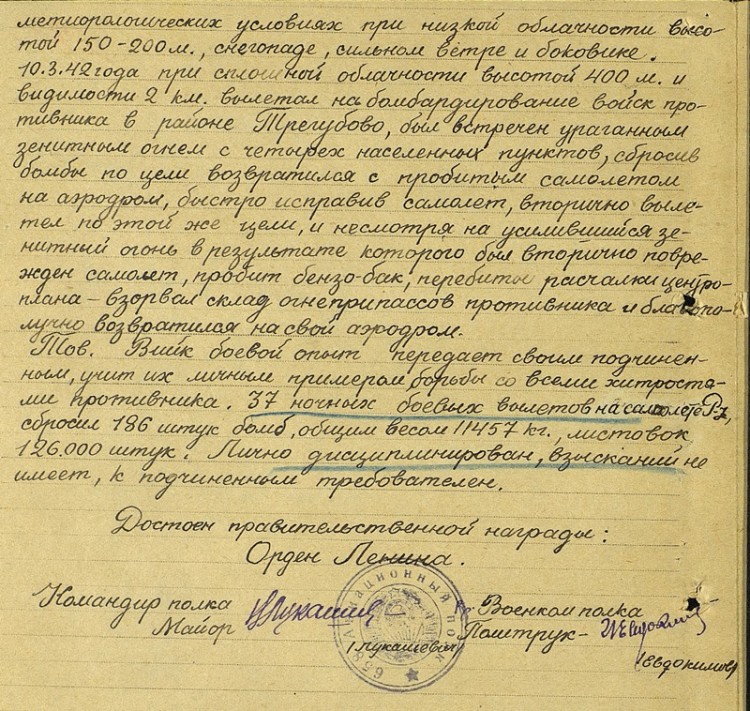 метиорологических условиях при низкой облачности высо-
той 150-200 м., снегопаде, сильном ветре и боковике.
10.3.42 года при сплошной облачности высотой 400 м. и
видимости 2 км. вылетал на бомбардирование войск про-
тивника в районе Трегубово, был встречен ураганным
зенитным огнем с четырех населенных пунктов, сбросив
бомбы по цели возвратился с пробитым самолетом
на аэродром, быстро исправив самолет, вторично выле-
тел по этой же цели, и несмотря на усилившийся зе-
нитный огонь в результате которого был вторично повре-
жден самолет, пробит бензо-бак, перебиты расчалки центро-
плана - взорвал склад огнеприпассов противника и благопо-
лучно возвратился на свой аэродром.
Тов. Вийк боевой опыт передает своим подчинен-
ным, учит их личным примером борьбы со всеми хитростя-
ми противника. 37 ночных боевых вылетов на самолете Р-5,
сбросил 186 штук бомб, общим весом 11457 кг., листовок
126.000 штук. Лично дисциплинирован, взысканий не
имеет, к подчиненным требователен.
Достоен правительственной награды:
Орден Ленина.
Командир полка
Майор
/Лукашевич/
Военком полка
Политрук-
/Евдокимов/
658 Авиационный полк